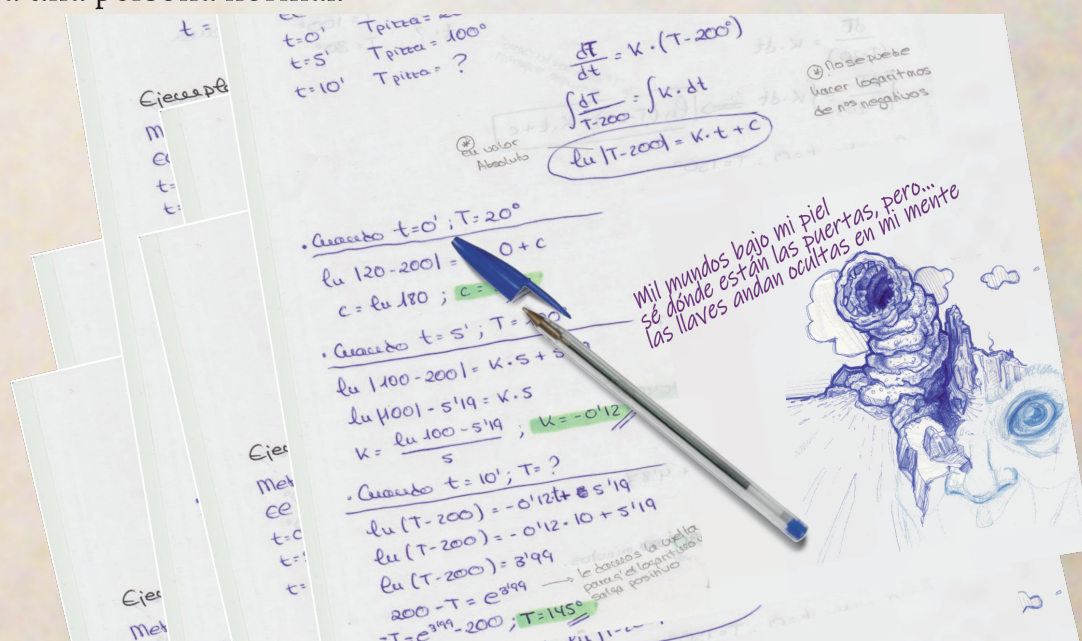 a una persona normal.
t =
t=0' Tpizza =
t=5' Tpizza = 100°
t=10' Tpizza = ?
dT/dt = K·(T-200°)
∫ dT/T-200 = ∫ K·dt
ln |T-200| = K·t + C
* en valor
Absoluto
* No se puede
hacer logaritmos
de nos negativos
Ejemplo
t=
t=
· Cuando t=0' ; T=20°
ln |20-200| = 0 + C
C = ln 180 ; C =
· Cuando t=5' ; T=
ln |100-200| = K·5 +
ln |100| - 5'19 = K·5
K = ln 100 - 5'19 / 5 ; K = -0'12
· Cuando t=10' ; T= ?
ln (T-200) = -0'12t + 5'19
ln (T-200) = -0'12·10 + 5'19
ln (T-200) = 3'99
200 - T = e^3'99 → le damos la vuelta
para q' el logaritmo
salga positivo
-T = e^3'99 - 200 ; T = 145°
Mil mundos bajo mi piel
sé dónde están las puertas, pero...
las llaves andan ocultas en mi mente
Ejem
Met
t=0
t=
t=
Ejem
Met